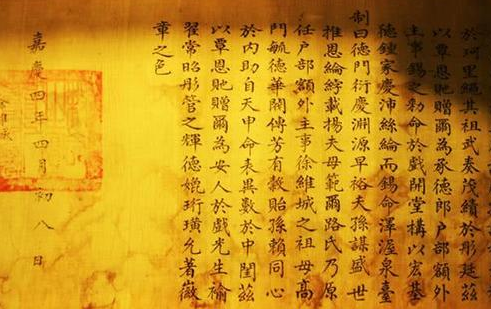 於珂里繩其祖武奏淺績於彤廷茲
以覃恩貤贈爾為承德郎户部額外
主事錫之勅命於戲開堂構以宏基
德鍾家慶沛絲綸而錫命澤渥泉臺
制曰德門衍慶淵源早裕夫孫謀盛世
推恩綸綍載揚夫母範爾路氏乃原
任户部額外主事徐維城之祖母高
門毓德華閥傳芳有榖貽孫賴同心
於内助自天申命表異數於中閨茲
以覃恩貤贈爾為安人於戲光生褕
翟常昭彤管之輝德媲珩璜允著徽
章之色
嘉慶四年四月初八日